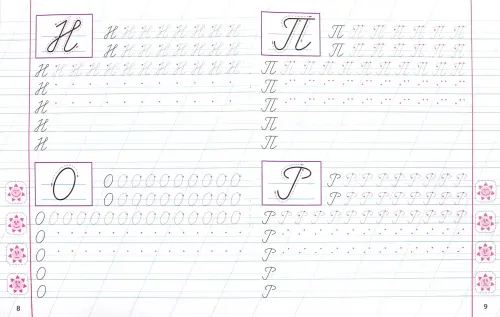 Н
Н Н Н Н Н Н Н Н
Н Н Н Н Н Н Н Н
Н Н Н Н Н Н Н Н Н Н Н Н
Н
Н
Н
Н
О
О О О О О О О О О О
О О О О О О О О О О
О О О О О О О О О О О О О О О
О
О
О
О
8
П
П П П П П П П П
П П П П П П П П
П П П П П П П П П П П П
П
П
П
П
Р
Р Р Р Р Р Р Р Р Р Р
Р Р Р Р Р Р Р Р Р Р
Р Р Р Р Р Р Р Р Р Р Р Р Р Р
Р
Р
Р
Р
9